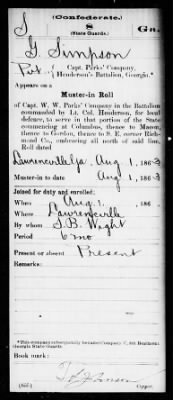 (Confederate.)
S 8 Ga.
(State Guards.)
G. Simpson
Pvt., Capt. Parks' Company,
Henderson's Battalion, Georgia.*
Appears on a
Muster-in Roll
of Capt. W. W. Parks' Company in the Battalion
commanded by Lt. Col. Henderson, for local
defence, to serve in that portion of the State
commencing at Columbus, thence to Macon,
thence to Gordon, thence to S. E. corner Rich-
mond Co., embracing all north of said line.
Roll dated
Lawrenceville Ga. Aug 1, 1863
Muster-in to date Aug 1, 1863
Joined for duty and enrolled:
When Aug. 1, 186
Where Lawrenceville
By whom J. B. Wright
Period 6 mo
Present or absent Present
Remarks:
*This company subsequently became Company
Georgia State Guards.
Book mark:
(655) Copyist.